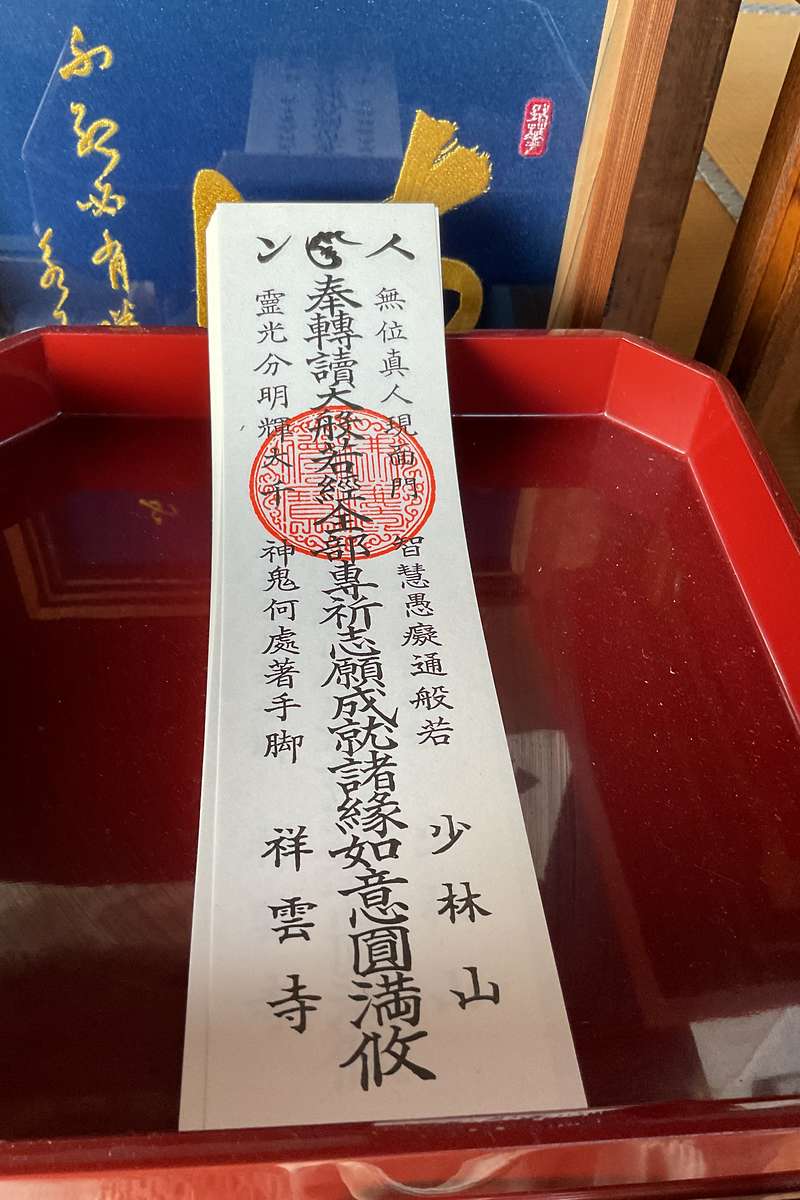 人
ン
奉轉讀大般若經全部專祈志願成就諸緣如意圓滿攸
無位真人現面門
智慧愚癡通般若
靈光分明輝大千
神鬼何處著手脚
少林山
祥雲寺
必有